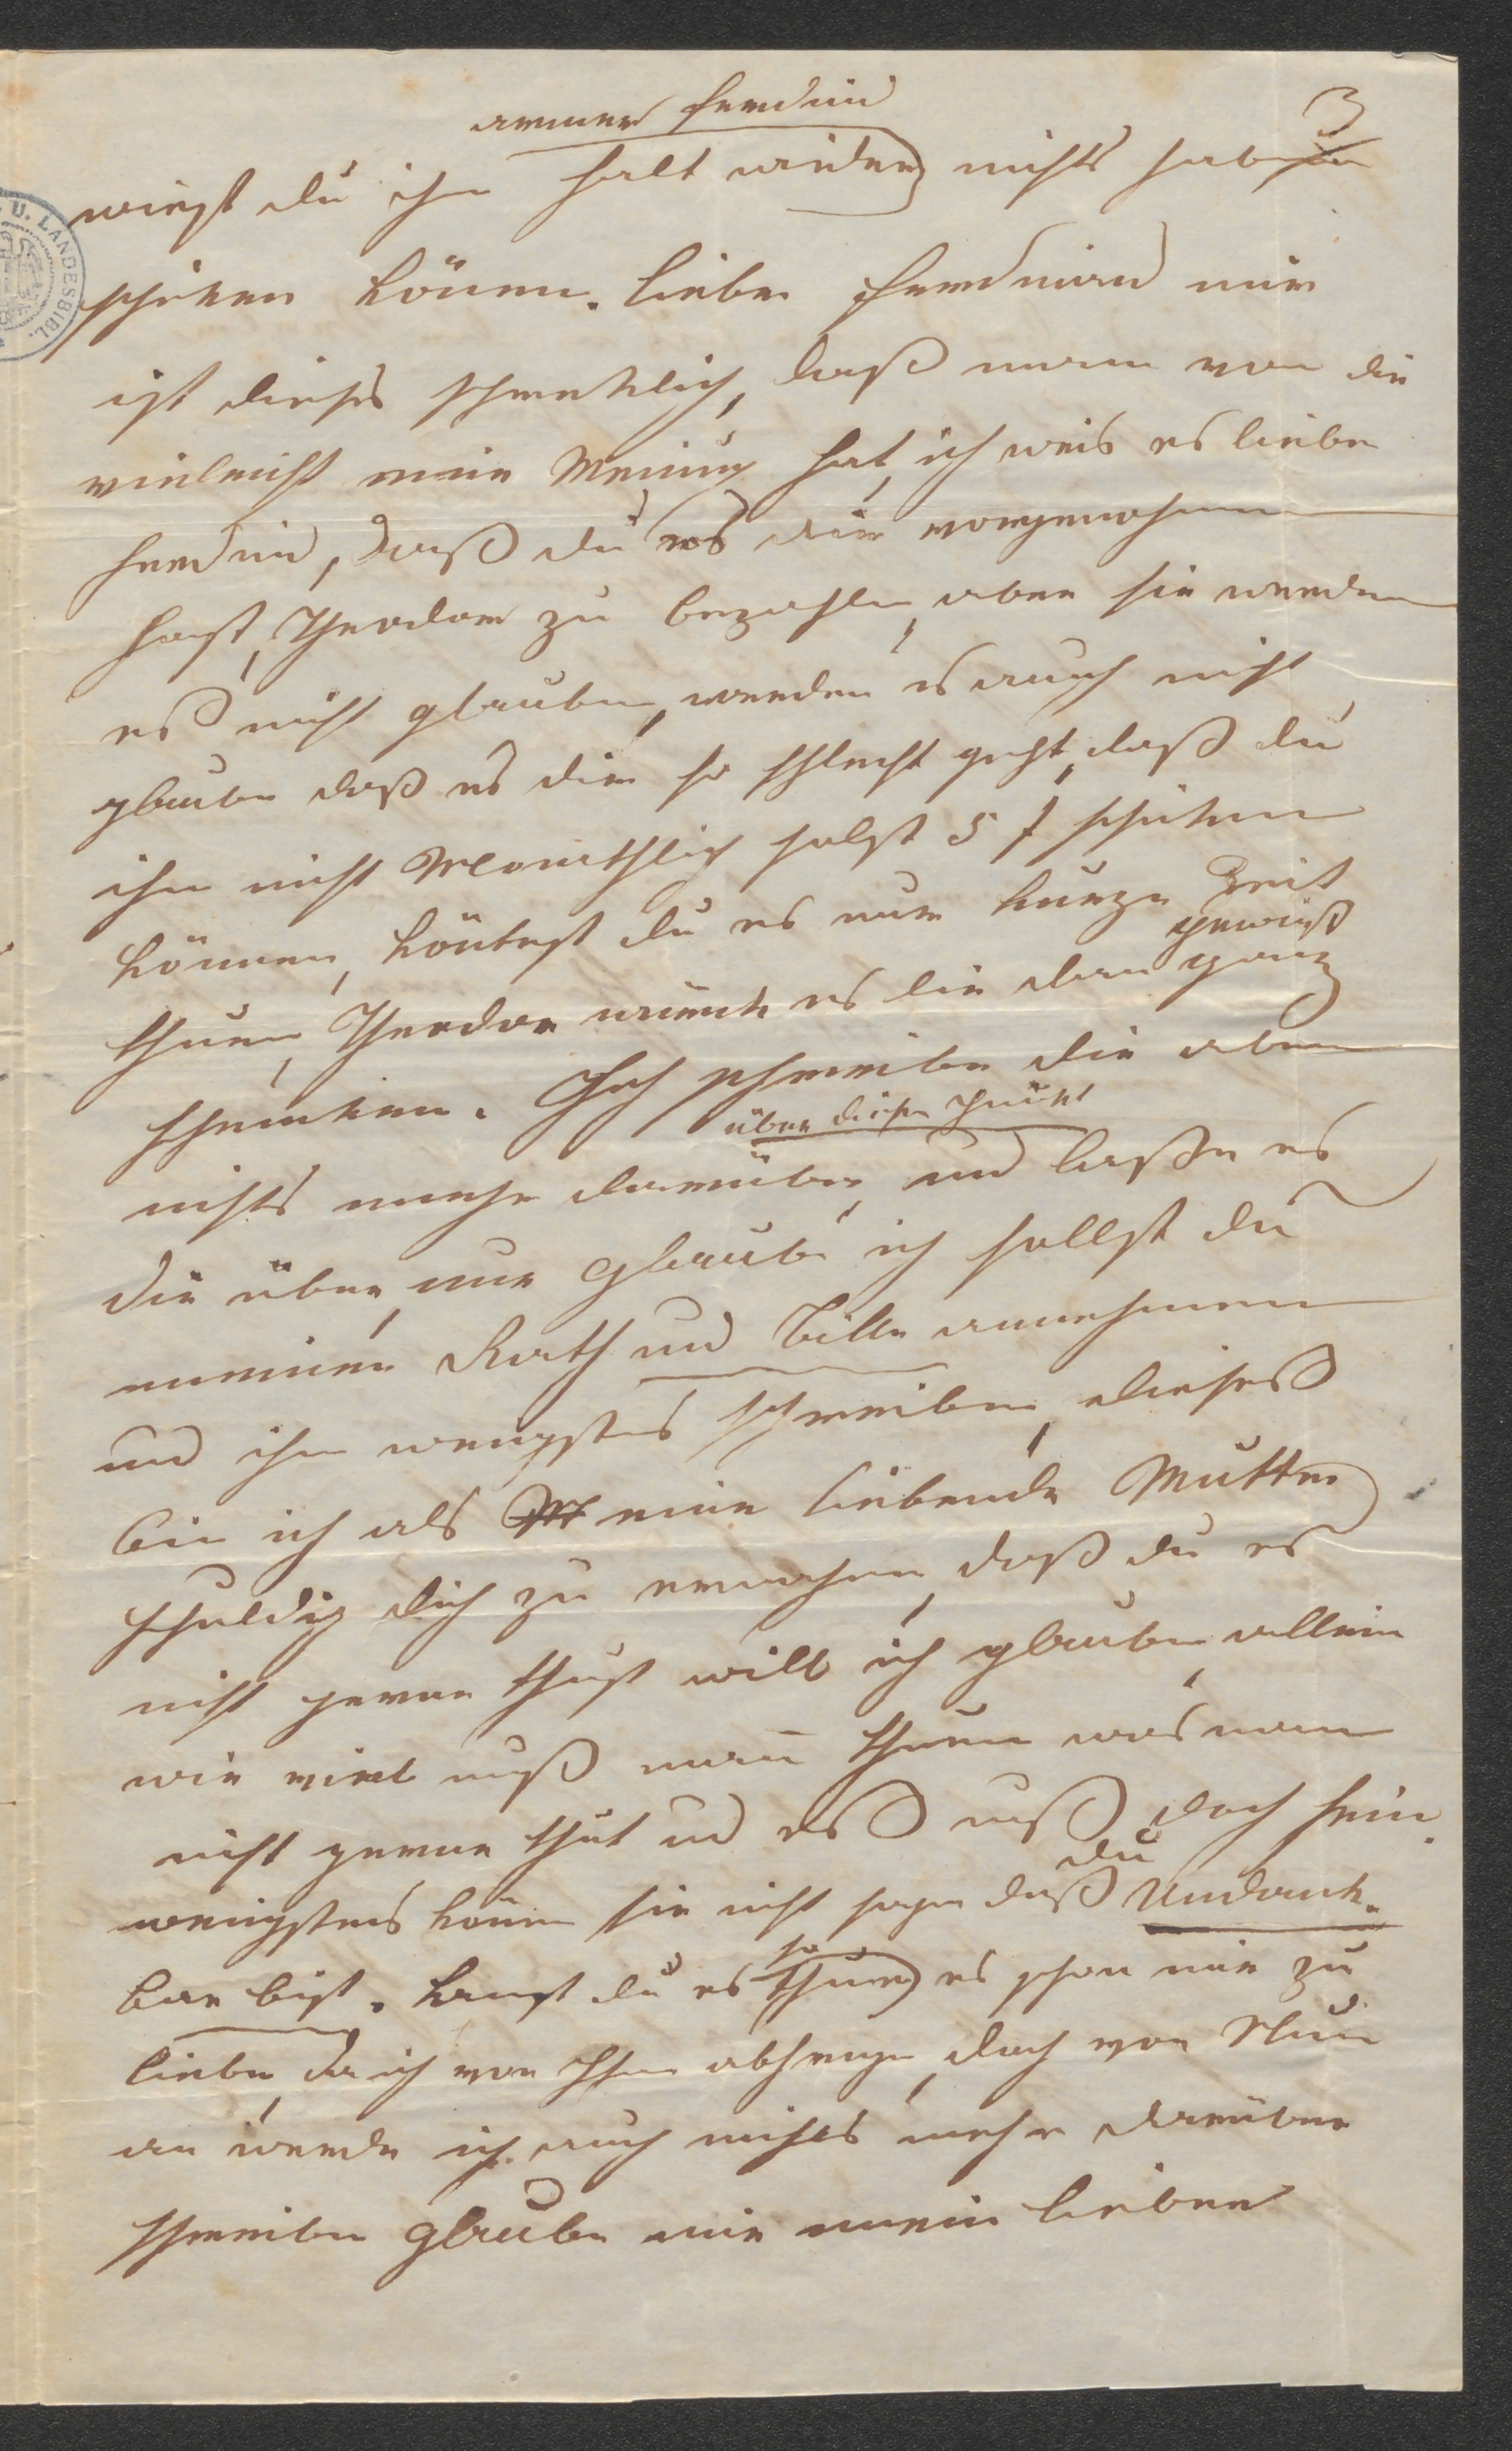 3
armer Ferdind
wirst du ihn halt wieder nichts haben
schiken könen. lieber Ferdinand mir
ist dieses schrecklich, daß mann von dir
vieleicht eine Meinung hat, ich weis es lieber
Ferdind, daß du es dir vorgenohmen
hast, Theodor zu bezahlen, aber sie werden
eß nicht glauben, werden es auch nicht
glauben daß es dir so schlecht geht, daß du
ihm nicht Monathlich solst 5 f schiken
können, köntest du es nur kurze Zeit
thuen, Theodor würde es dir dan ganz
gewiß
schenken. Ich schreibe dir aber
über diesen Punkt
nichts mehr darüber, und lasse es
dir über, nur glaube ich sollst du
meinen Rath und Bitte annehmen
und ihm wenigstens schreiben, dieseß
bin ich als eine liebende Mutter
schuldig dich zu ermahnen, daß du es
nicht gerne thust will ich glauben, allein
wie viel muß mann thuen was man
nicht gerne thut und es muß doch sein.
wenigstens könen sie nicht sagen daß du Undank-
bar bist. kanst du es so thue es schon mir zu
liebe, da ich von Ihnen abhenge, doch von Nun
an werde ich auch nichts mehr darüber
schreiben glaube mir mein lieber
U. LANDESBIBL.